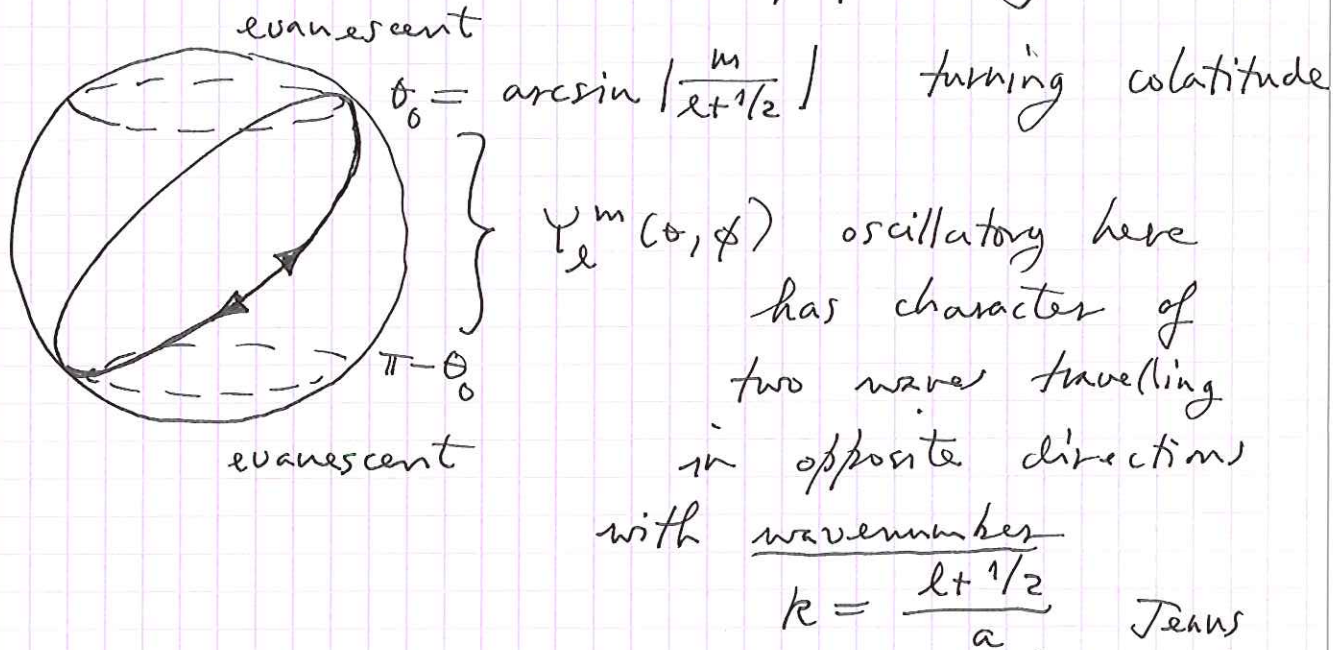 evanescent
θ₀ = arcsin |m/(l+1/2)| turning colatitude
Yₗᵐ (θ, φ) oscillatory here
has character of
two waves travelling
π-θ₀
in opposite directions
evanescent
with wavenumber
k = (l+1/2)/a Jeans